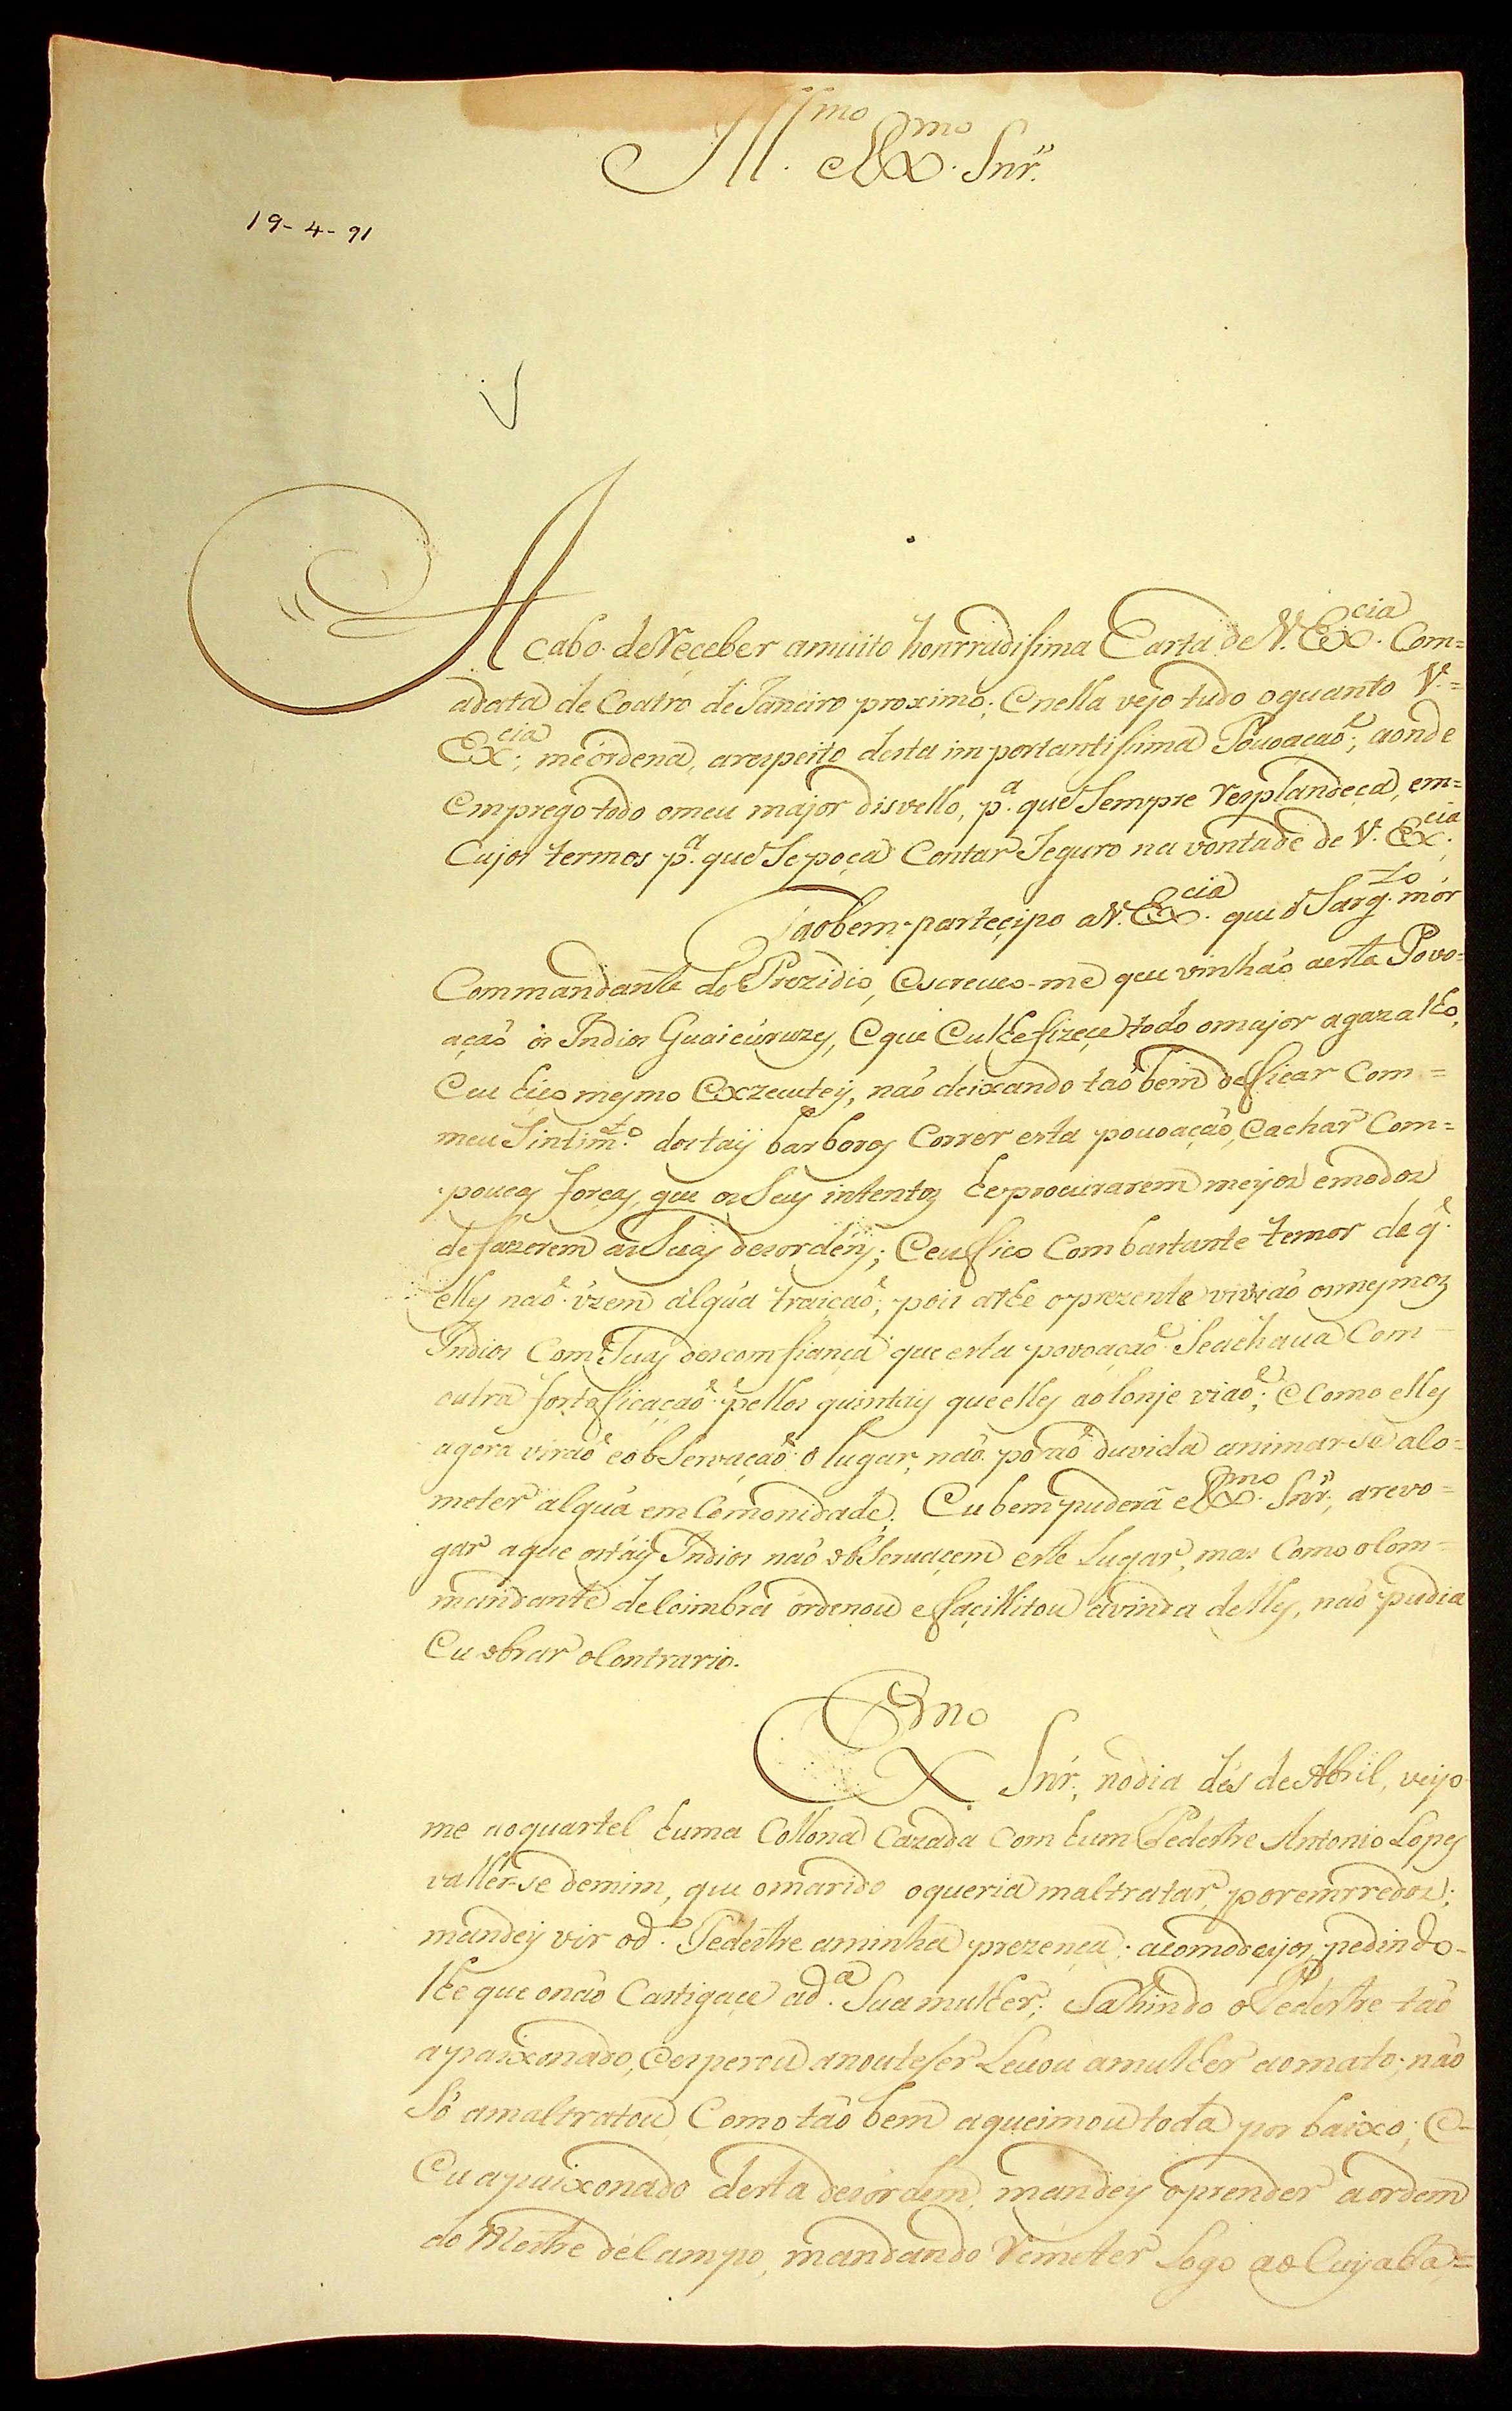 Ill.mo e Ex.mo Snr.
19-4-91
Acabo de Receber amuito honrradisima Carta de V. Ex.cia Com=
adata de Coatro de Janeiro proximo; e nella vejo tudo oquanto V.=
Ex.cia; meórdena, arespeito desta importantissima Povoaçaõ; aonde
emprego todo omeu major disvello, p.a que Sempre Resplandeça, em=
Cujos termos p.a que Sepoça Contar Seguro na vontade de V. Ex.cia.
Taobem partecipo aV. Ex.cia que o Sarg.to mór
Commandante do Prezidio, escreveo-me que vinhaõ aesta Povo=
açaõ os Indios Guaicúruzes, e que eu lhe fizeçe todo omajor agazalho,
e eu hiço mesmo exzecutey, naõ deixando taõ bem deficar Com=
meu Sintim.to destas barboros Correr esta povoaçaõ, e achar Com=
poucas forças, que os Seus intentos he procurarem meyos e modos
de fazerem as Suas desordens; e eu fico Com bastante temor de q.
elles naõ uzem algúa traiçaõ; pois athe oprezente viviaõ os mesmos
Indios Com Suas descomfiança que esta povoaçaõ Seachava Com
outra fortificaçaõ pellos quintais que elles aolonje viaõ; e como elles
agora viraõ eobServaçaõ o lugar, naõ poraõ duvida animar-se aCo=
meter algúa em Cómonidade; Eu bem puderá e Ex.mo Snr., arevo=
gar aque estas Indios naõ obServaçem este Lugar, mas Como oCom=
mandante deCoimbra órdenou e façillitou avinda delles, naõ pudia
Eu obrar oContrario.
Ex.mo Snr., nodia dés de Abril, veyo
me aoquartel huma Collona Cazada com hum Pedestre Antonio Lopes
valler-se demim, que omarido oqueria maltratar, poremrredos;
mandey vir od.o Pedestre aminha prezença; acomodeyos, pedindo-
lhe que onaõ Castigaçe ad.a Sua mulher; Sahindo o Pedestre taõ
apaixonado, e esperou anouteser Levou amulher aomato; naõ
Só amaltratou, Como taõ bem aqueimou toda por baixo; e
Eu apaixonado desta desórdem, mandey oprender aordem
do Mestre deCampo, mandando Remeter Logo ao Cuyabá,=